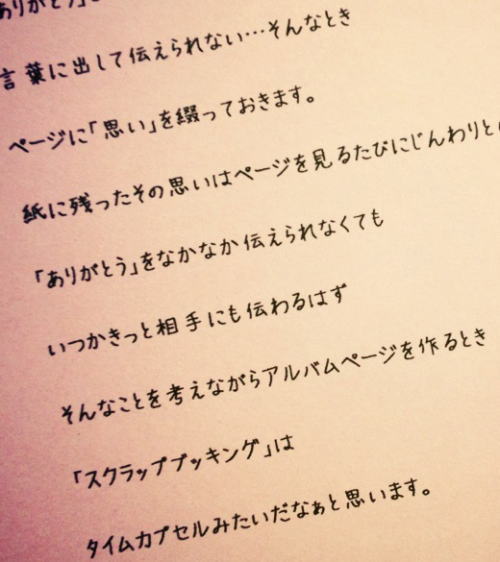 ありがとう」
言葉に出して伝えられない…そんなとき
ページに「思い」を綴っておきます。
紙に残ったその思いはページを見るたびにじんわりと
「ありがとう」をなかなか伝えられなくても
いつかきっと相手にも伝わるはず
そんなことを考えながらアルバムページを作るとき
「スクラップブッキング」は
タイムカプセルみたいだなぁと思います。